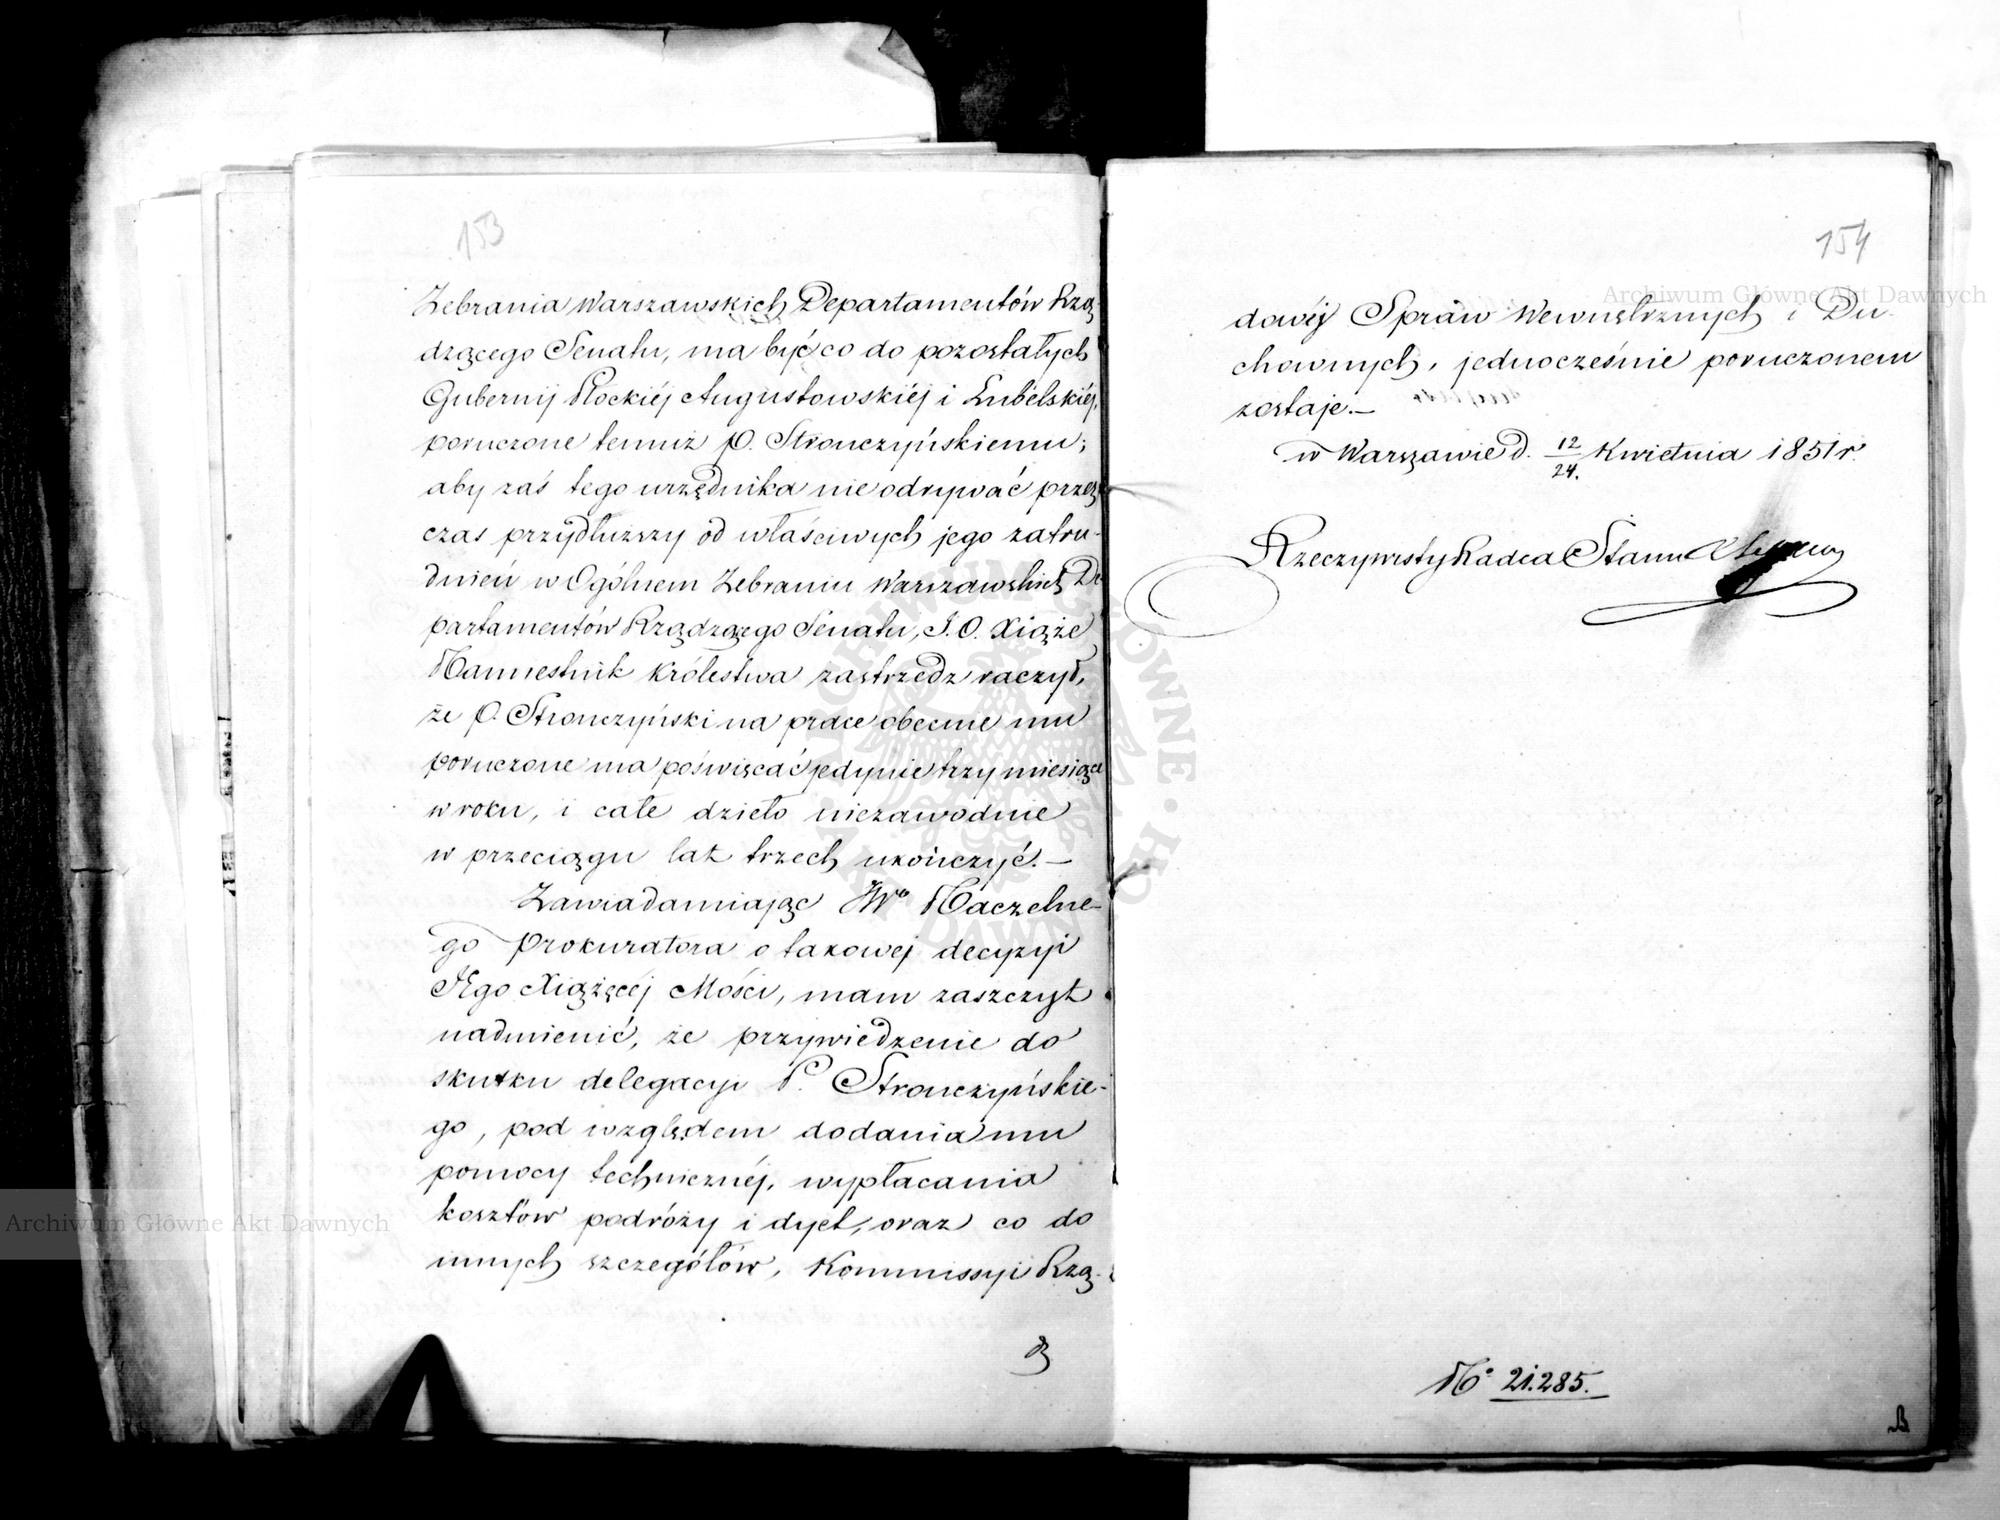 153
Zebrania Warszawskich Departamentów Rzą-
dzącego Senatu, ma być co do pozostałych
Gubernij Płockiéj Augustowskiéj i Lubelskiéj,
poruczone temuż P. Stronczyńskiemu;
aby zaś tego urzędnika nie odrywać przez
czas przydłuższy od właściwych jego zatru-
dnień w Ogólnem Zebraniu Warszawskich De-
partamentów Rządzącego Senatu, J. O. Xiąże
Namiestnik Królestwa zastrzedz raczył,
że P. Stronczyński na prace obecnie mu
poruczone ma poświęcać jedynie trzy miesiące
w roku, i całe dzieło niezawodnie
w przeciągu lat trzech ukończyć.—
Zawiadamiając JWo Naczelne-
go Prokuratora o takowej decyzyi
JEgo Xiążęcéj Mości, mam zaszczyt
nadmienić, że przywiedzenie do
skutku delegacyi P. Stronczyńskie-
go, pod względem dodania mu
pomocy technicznéj, wypłacania
kosztów podróży i dyet, oraz co do
innych szczegółów, Kommissyi Rzą-
154
dowéj Spraw Wewnętrznych i Du-
chownych, jednocześnie poruczonem
zostaje.—
w Warszawie d. 12/24. Kwietnia 1851 r.
Rzeczywisty Radca Stanu
No 21.285.
Archiwum Główne Akt Dawnych
Archiwum Główne Akt Dawnych